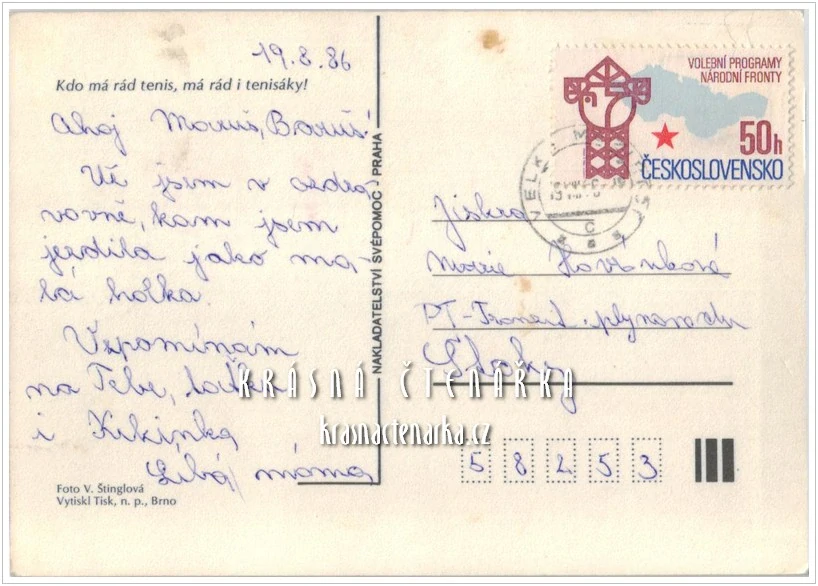 19.8.86
Kdo má rád tenis, má rád i tenisáky!
Ahoj Maruš, Boruš!
Už jsem v ozdra
vovně, kam jsem
jezdila jako ma-
lá holka.
Vzpomínám
na Tebe,
i Kikinka
Líbá máma
Foto V. Štinglová
Vytiskl Tisk, n. p., Brno
NAKLADATELSTVÍ SVÉPOMOC - PRAHA
VOLEBNÍ PROGRAMY
NÁRODNÍ FRONTY
50h
ČESKOSLOVENSKO
VELKÉ
Jiskra
Marie
PT-Tranzit. plynovodu
Štoky
58253
KRÁSNÁ ČTENÁŘKA
krasnactenarka.cz